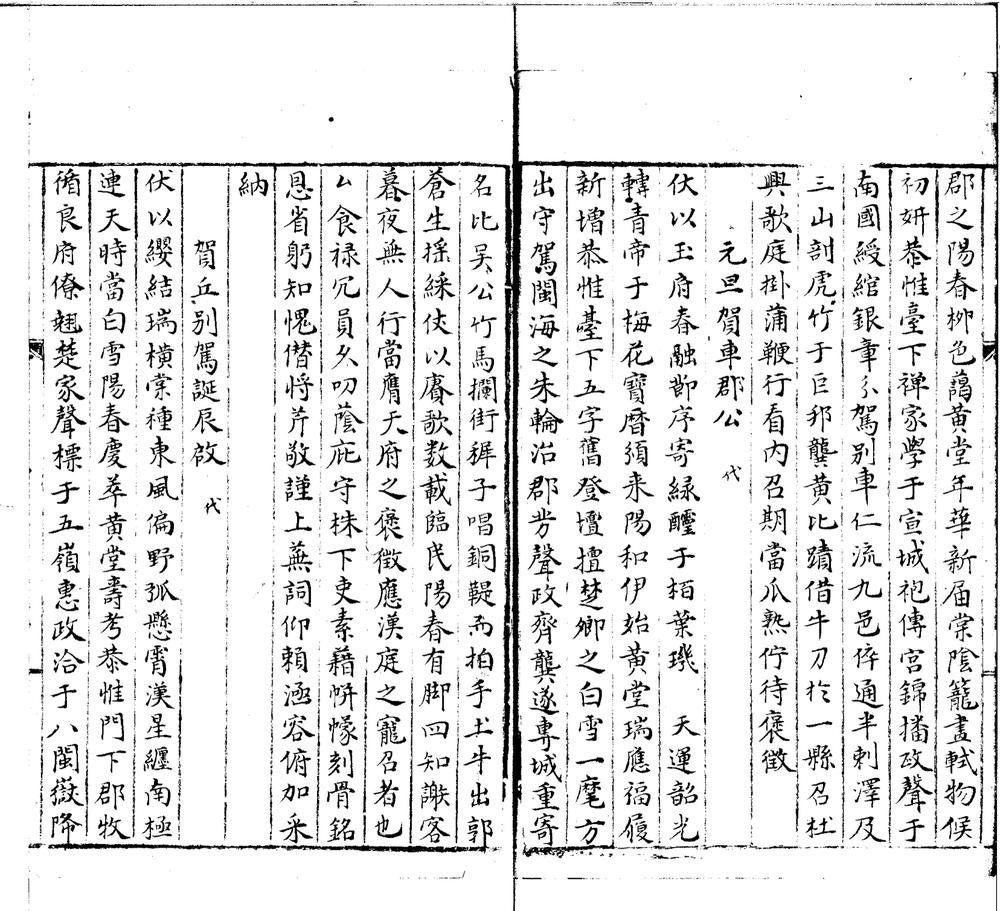 郡之陽春柳色藹黃堂年華新届棠陰籠畫軾物候
初妍恭惟臺下禅家學于宣城袍傳宮錦播政聲于
南國綬綰銀章分駕别車仁流九邑倅通半剌澤及
三山剖虎竹于巨邦龔黃比蹟借牛刀於一縣召杜
興歌庭掛蒲鞭行看内召期當瓜熟佇待褒徴
元旦賀車郡公 代
伏以玉府春融節序寄緑醽于栢葉璣 天運韶光
轉青帝于梅花寳曆須来陽和伊始黃堂瑞應福履
新増恭惟臺下五字舊登壇擅楚鄉之白雪一麾方
出守駕閩海之朱輪治郡芳聲政齊龔遂專城重寄
名比吴公竹馬攔街穉子唱銅鞮而拍手土牛出郭
蒼生採綵仗以賡歌数載臨民陽春有脚四知謝客
暮夜無人行當膺天府之褒徴應漢庭之寵召者也
厶食禄冗員久叨蔭庇守株下吏素藉帡幪刻骨銘
恩省躬知愧僣將芹敬謹上蕪詞仰賴涵容俯加采
納
賀丘别駕誕辰啟 代
伏以纓結瑞横棠種東風偏野弧懸霄漢星纏南極
連天時當白雪陽春慶萃黃堂壽考恭惟門下郡牧
循良府僚翹楚家聲標于五嶺惠政洽于八閩嶽降